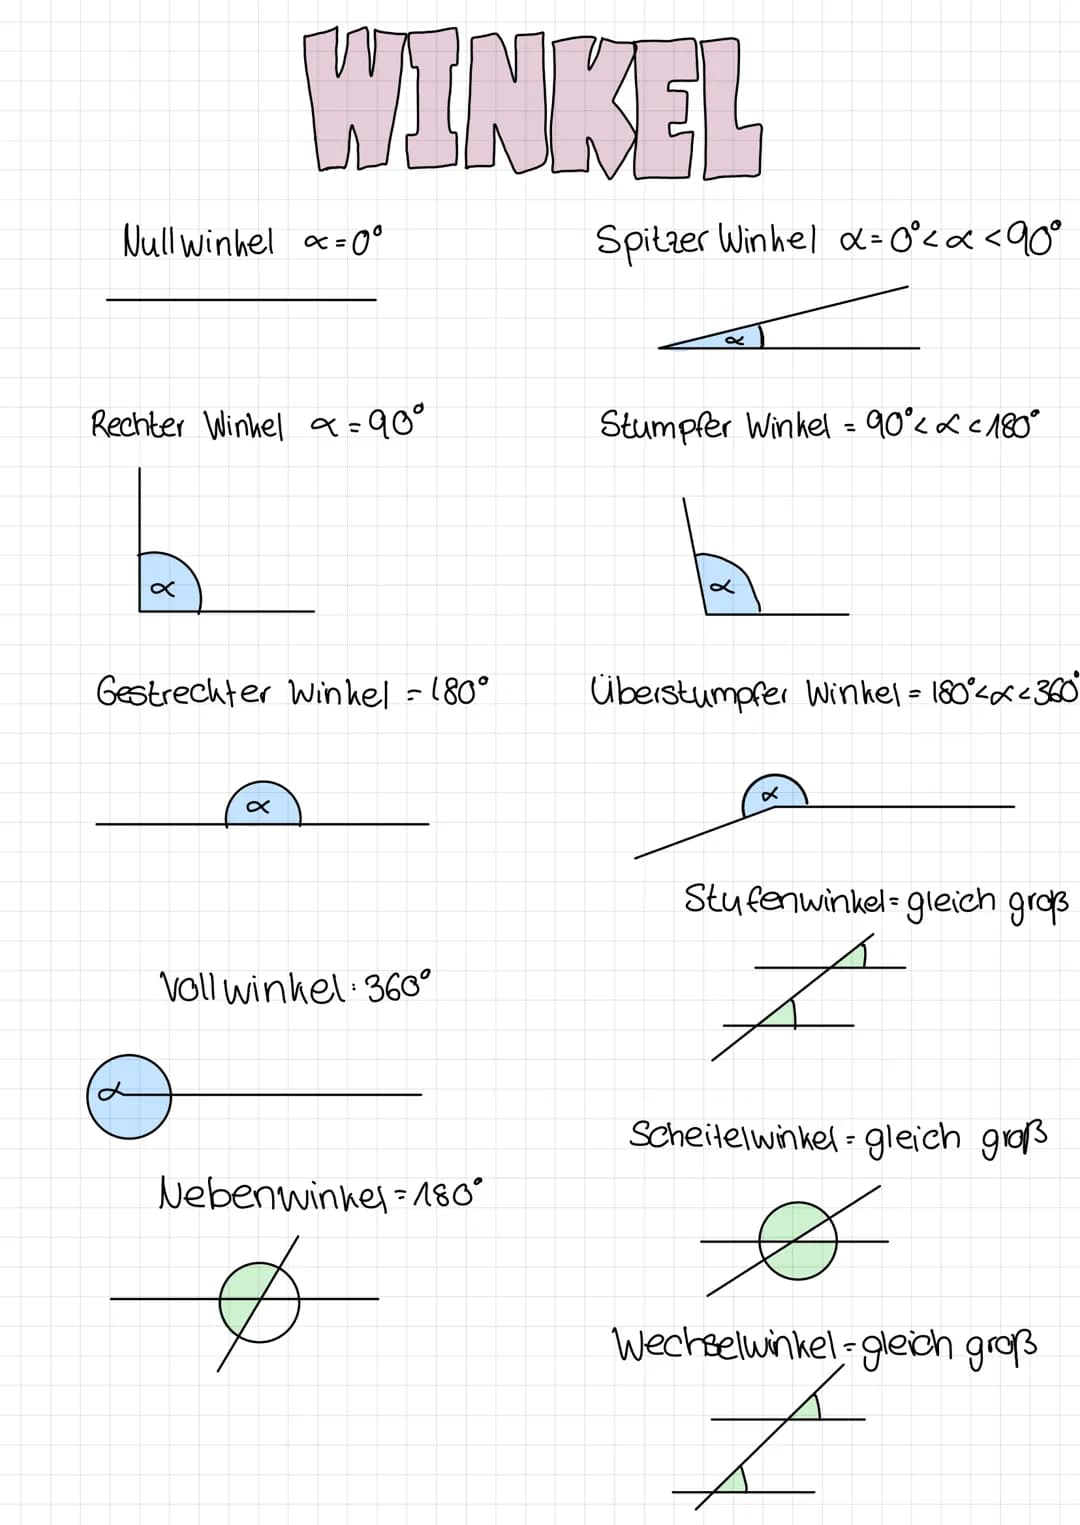 WINKEL
Nullwinkel α=0°
Spitzer Winkel α=0°<α<90°
α
Rechter Winkel α=90°
Stumpfer Winkel = 90°<α<180°
α
α
Gestreckter Winkel = 180°
Überstumpfer Winkel = 180°<α<360°
α
α
Stufenwinkel = gleich groß
Vollwinkel: 360°
α
Scheitelwinkel = gleich groß
Nebenwinkel = 180°
Wechselwinkel = gleich groß